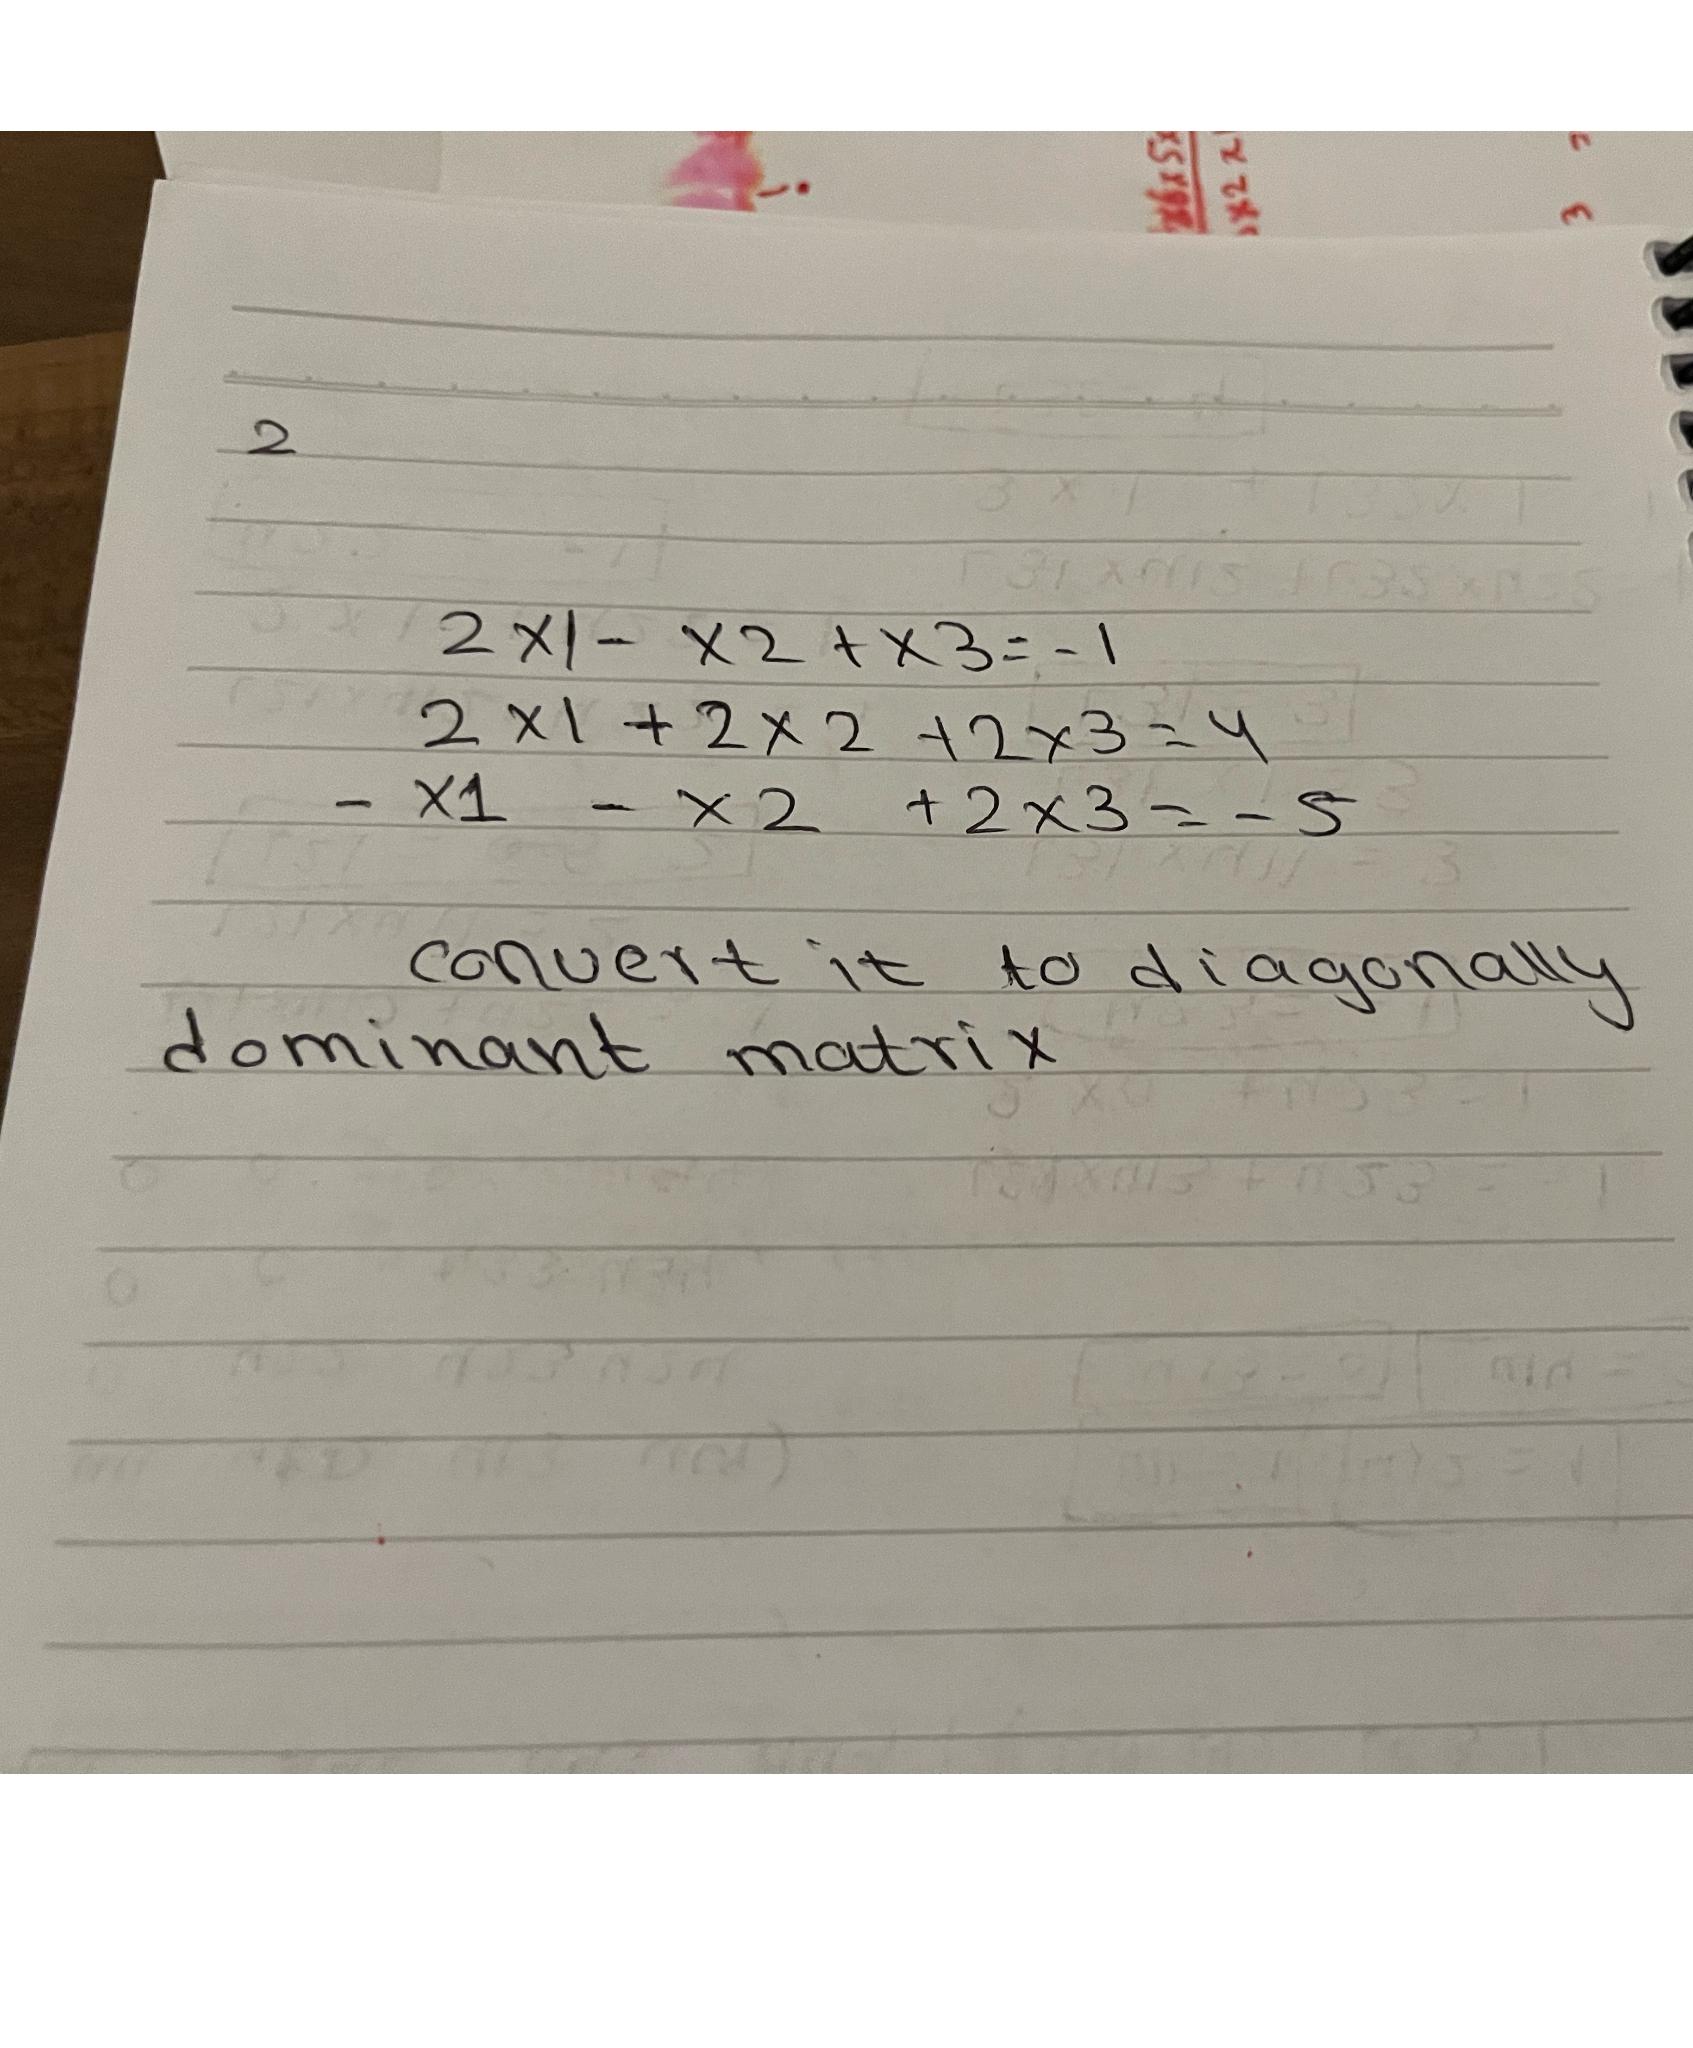 2
2x1 - x2 + x3 = -1
2x1 + 2x2 + 2x3 = 4
- x1 - x2 + 2x3 = - 5
convert it to diagonally
dominant matrix